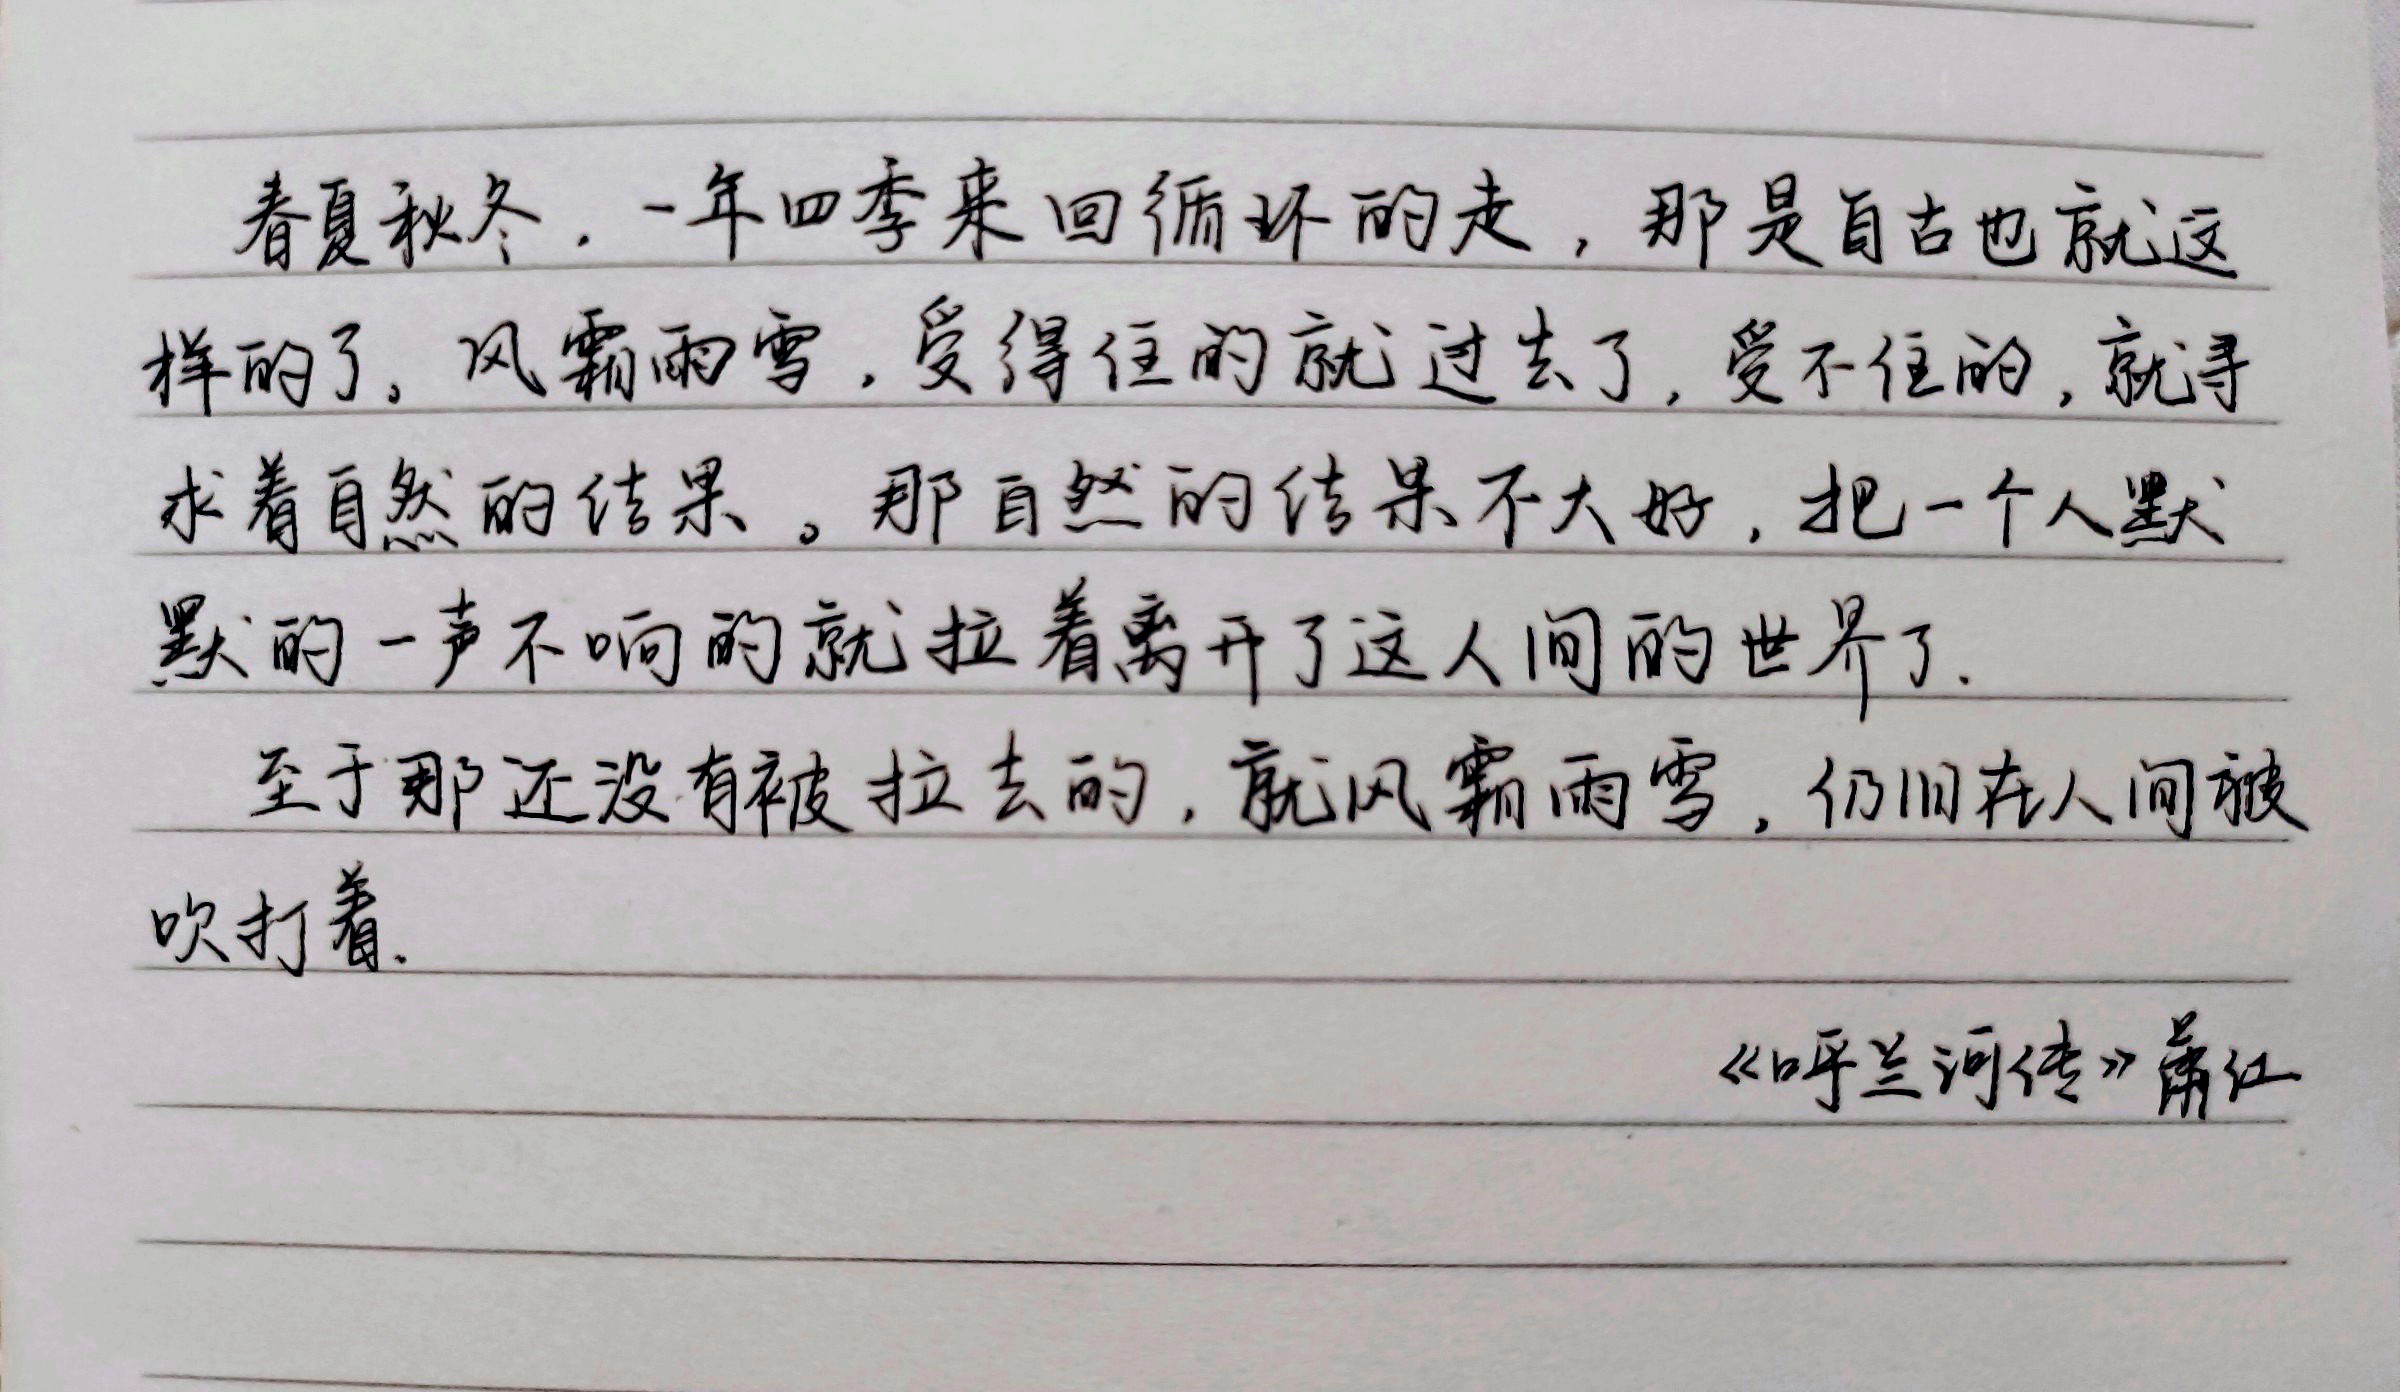 春夏秋冬，一年四季来回循环的走，那是自古也就这
样的了。风霜雨雪，受得住的就过去了，受不住的，就寻
求着自然的结果。那自然的结果不大好，把一个人默
默的一声不响的就拉着离开了这人间的世界了.
至于那还没有被拉去的，就风霜雨雪，仍旧在人间被
吹打着.
《呼兰河传》萧红